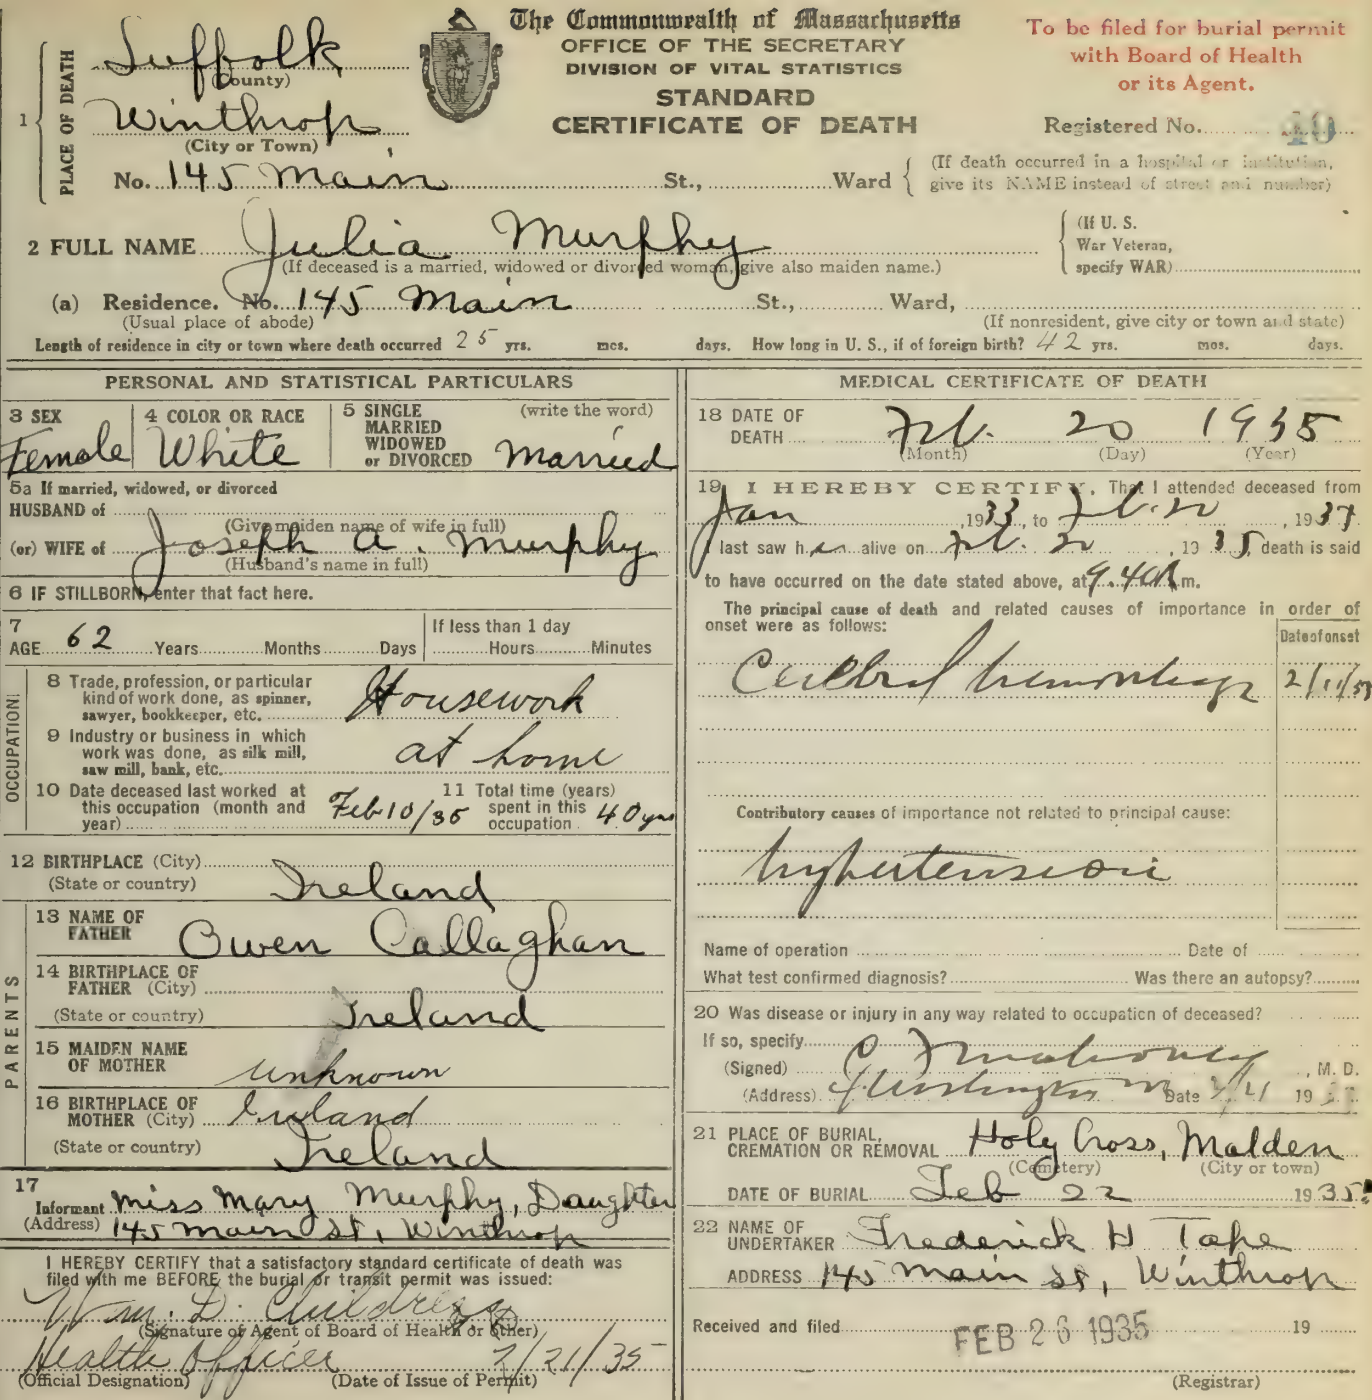 The Commonwealth of Massachusetts
OFFICE OF THE SECRETARY
DIVISION OF VITAL STATISTICS
STANDARD
CERTIFICATE OF DEATH
To be filed for burial permit
with Board of Health
or its Agent.
Registered No. 40
1 PLACE OF DEATH
Suffolk
(County)
Winthrop
(City or Town)
No. 145 Main St., Ward
(If death occurred in a hospital or institution,
give its NAME instead of street and number)
2 FULL NAME Julia Murphy
(If deceased is a married, widowed or divorced woman, give also maiden name.)
(If U. S.
War Veteran,
specify WAR)
(a) Residence. No. 145 Main St., Ward,
(Usual place of abode) (If nonresident, give city or town and state)
Length of residence in city or town where death occurred 25 yrs. mos. days. How long in U. S., if of foreign birth? 42 yrs. mos. days.
PERSONAL AND STATISTICAL PARTICULARS
3 SEX
Female
4 COLOR OR RACE
White
5 SINGLE (write the word)
MARRIED
WIDOWED
or DIVORCED Married
5a If married, widowed, or divorced
HUSBAND of
(Give maiden name of wife in full)
(or) WIFE of Joseph A. Murphy
(Husband's name in full)
6 IF STILLBORN, enter that fact here.
7
AGE 62 Years Months Days
If less than 1 day
Hours Minutes
OCCUPATION
8 Trade, profession, or particular
kind of work done, as spinner,
sawyer, bookkeeper, etc. Housework
9 Industry or business in which
work was done, as silk mill,
saw mill, bank, etc. at home
10 Date deceased last worked at
this occupation (month and
year) Feb 10/35
11 Total time (years)
spent in this
occupation 40 yrs
12 BIRTHPLACE (City)
(State or country) Ireland
PARENTS
13 NAME OF
FATHER Owen Callaghan
14 BIRTHPLACE OF
FATHER (City)
(State or country) Ireland
15 MAIDEN NAME
OF MOTHER unknown
16 BIRTHPLACE OF
MOTHER (City) Ireland
(State or country) Ireland
17
Informant Miss Mary Murphy, Daughter
(Address) 145 Main St, Winthrop
I HEREBY CERTIFY that a satisfactory standard certificate of death was
filed with me BEFORE the burial or transit permit was issued:
Wm. D. Childress
(Signature of Agent of Board of Health or other)
Health Officer 2/21/35
(Official Designation) (Date of Issue of Permit)
MEDICAL CERTIFICATE OF DEATH
18 DATE OF
DEATH Feb. 20 1935
(Month) (Day) (Year)
19 I HEREBY CERTIFY, That I attended deceased from
Jan, 1933, to Feb. 20, 1935
I last saw her alive on Feb. 20, 1935, death is said
to have occurred on the date stated above, at 9.40 m.
The principal cause of death and related causes of importance in order of
onset were as follows:
Date of onset
Cerebral hemorrhage 2/11/35
Contributory causes of importance not related to principal cause:
hypertension
Name of operation Date of
What test confirmed diagnosis? Was there an autopsy?
20 Was disease or injury in any way related to occupation of deceased?
If so, specify
(Signed) Mahoney, M. D.
(Address) Date 19
21 PLACE OF BURIAL,
CREMATION OR REMOVAL Holy Cross, Malden
(Cemetery) (City or town)
DATE OF BURIAL Feb 22 1935
22 NAME OF
UNDERTAKER Frederick H Tape
ADDRESS 145 Main St, Winthrop
Received and filed FEB 26 1935 19
(Registrar)